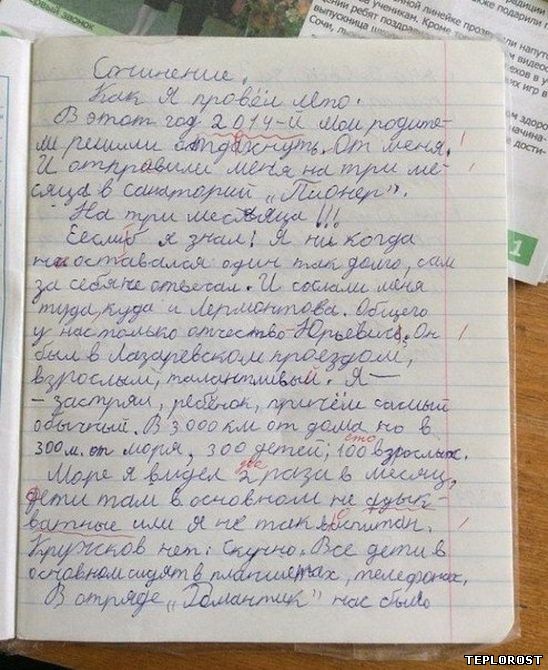 первый звонок
Сочинение.
Как я провёл лето.
В этот год 2014-й мои родите-
ли решили отдахнуть. От меня.
И отправили меня на три ме-
сяца в санаторий „Пионер".
На три месяца!!!
Еесли б я знал! Я ни когда
не оставался один так долго, сам
за себя не отвечал. И сослали меня
туда, куда и Лермонтова. Общего
у нас только отчество - Юрьевич. Он
был в Лазаревском проездом,
взрослым, талантливый. Я —
- застрял, ребёнок, причём самый
обычный. В 3000 км от дома но в
300 м. от моря, 300 детей, 100 взрослых.
сто
Море я видел 2 раза в месяц,
два
дети там в основном не адык-
ватные или я не так воспитан.
Кружков нет. Скучно. Все дети в
основном сидят в планшетах, телефонах.
В отряде „Романтик" нас было
1
TEPLOROST